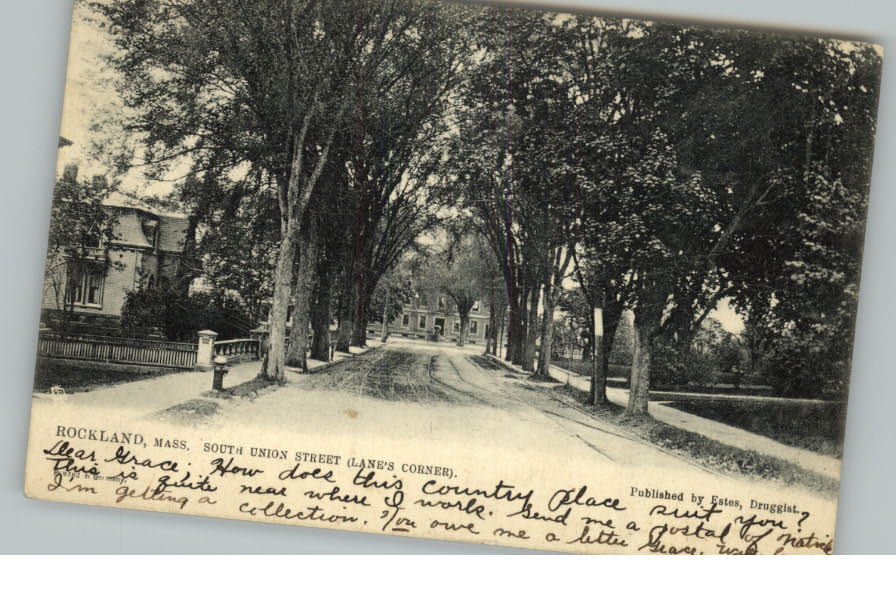 ROCKLAND, MASS. SOUTH UNION STREET (LANE'S CORNER).
Published by Estes, Druggist.
Dear Grace. How does this country place suit you?
This is quite near where I work. Send me a postal of Natick
I'm getting a collection. You owe me a letter Grace.